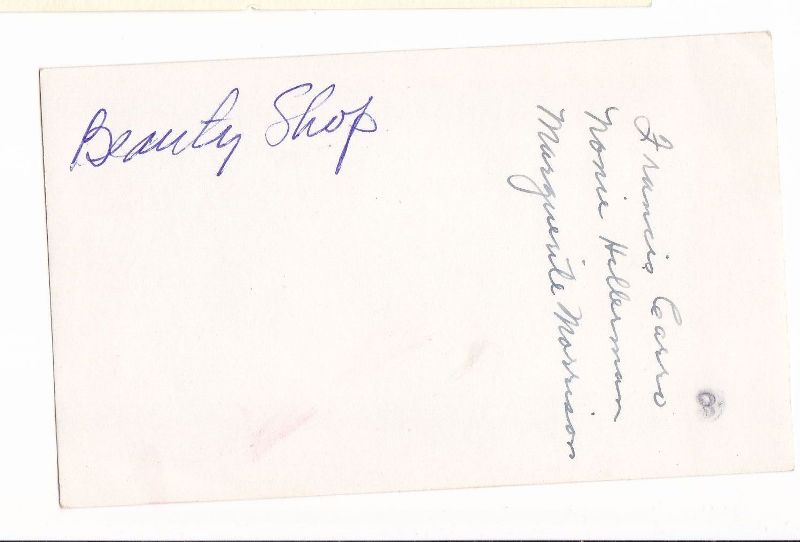 Beauty Shop
Francis Carro
Nonie Hillerman
Marguerite Morrison